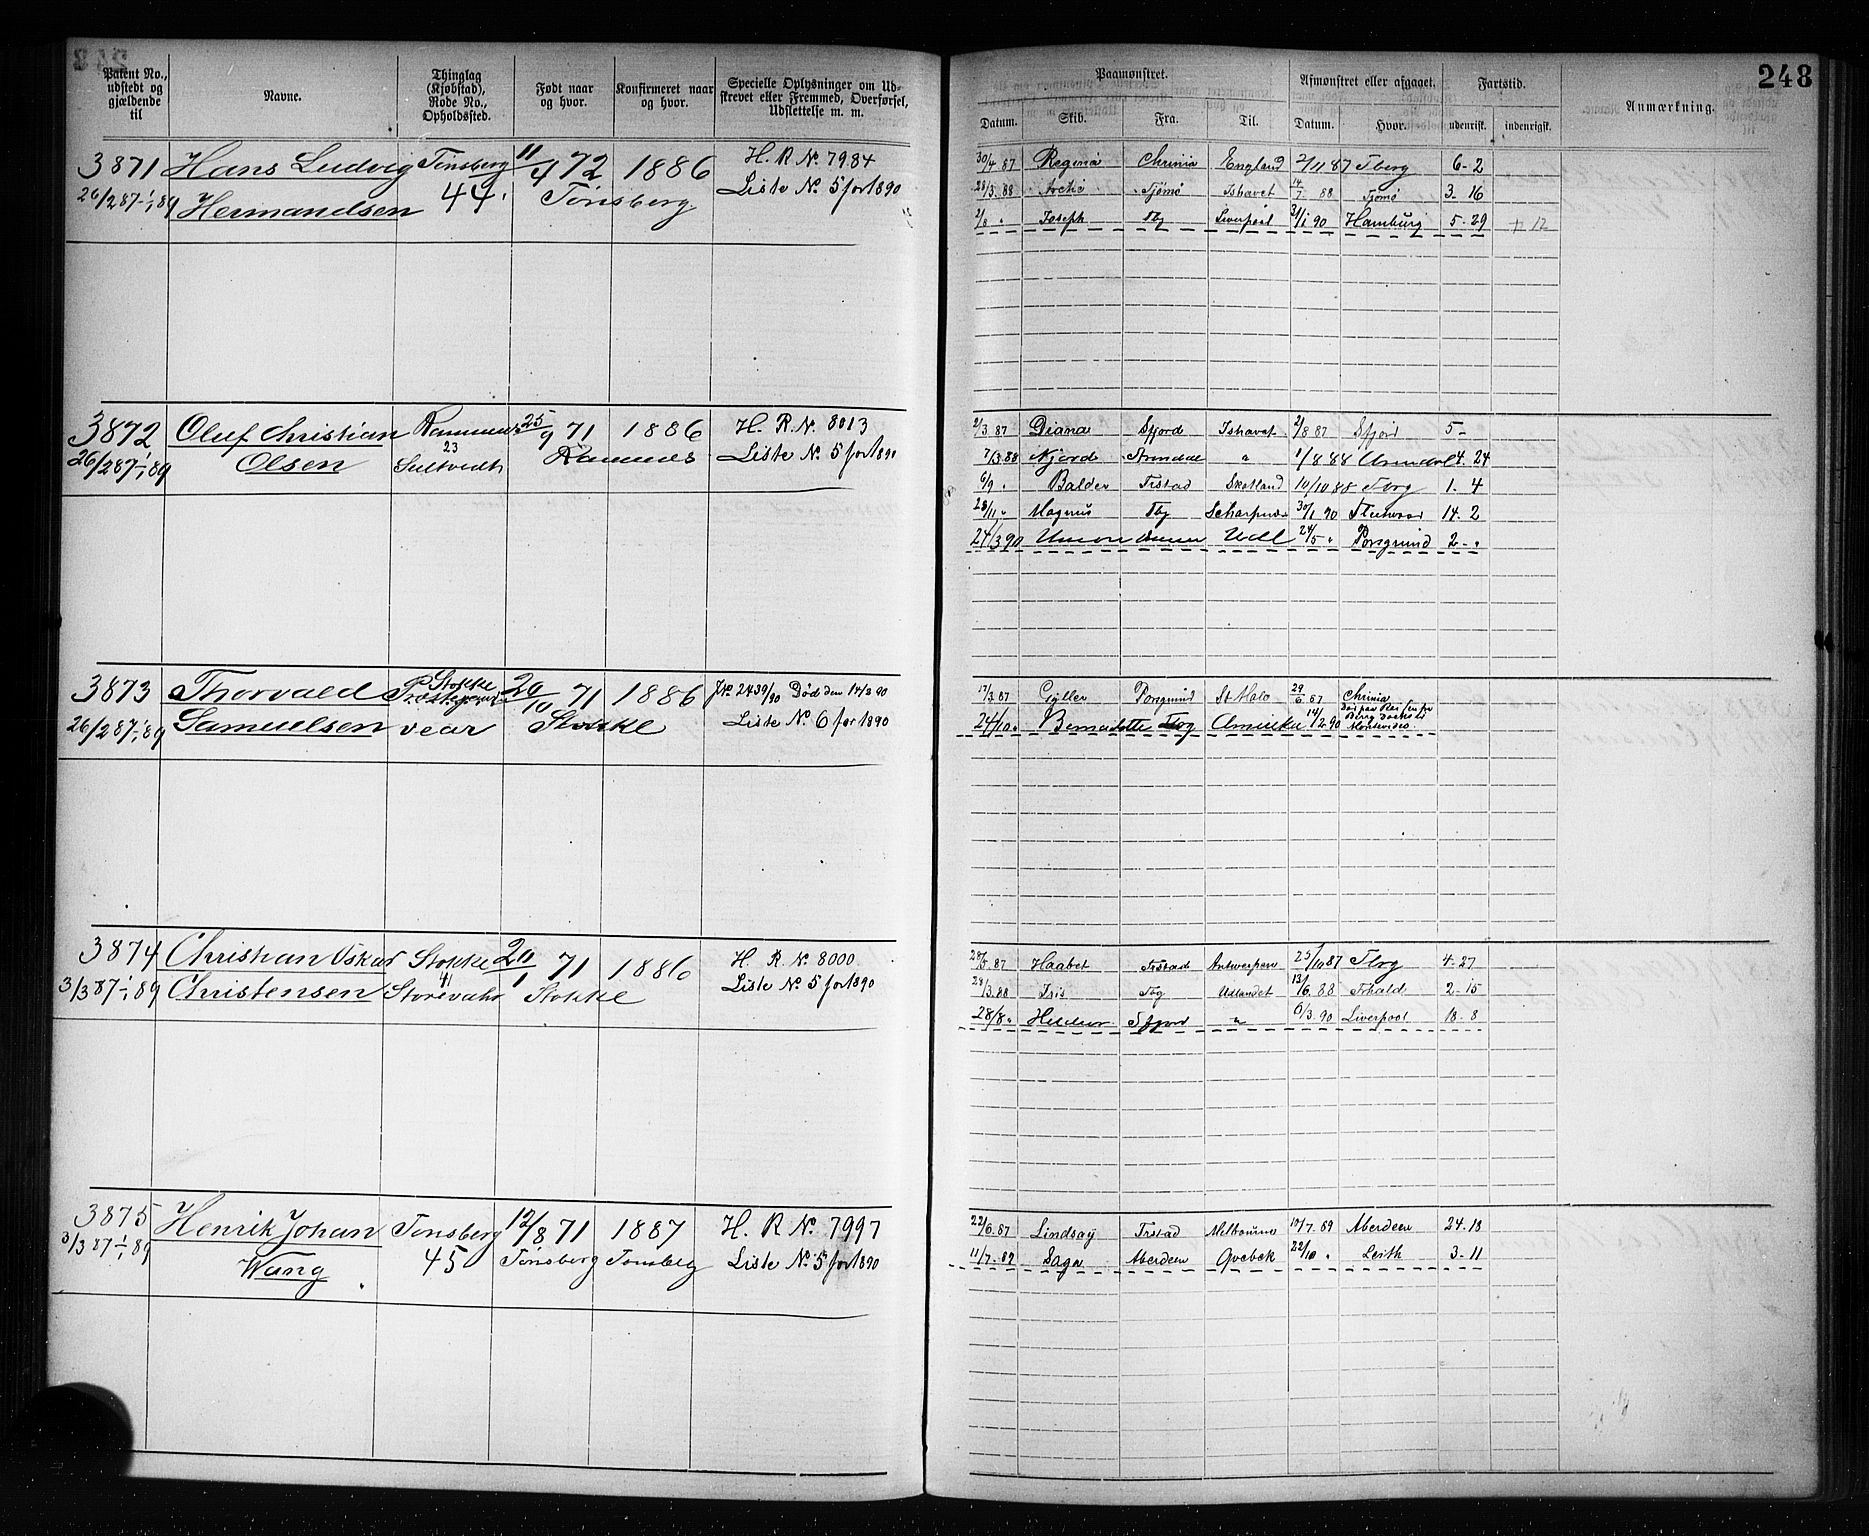 248
Patent No., udstedt og gjældende til
Navne.
Thinglag (Kjøbstad), Rode No., Opholdssted.
Født naar og hvor.
Konfirmeret naar og hvor.
Specielle Oplysninger om Udstrevet eller Fremmed, Overførsel, Udslettelse m. m.
Paamønstret.
Afmønstret eller afgaaet.
Fartstid.
Anmærkning.
Datum. Skib. Fra. Til. Datum. Hvor. udenrigst. indenrigst.
3871 Hans Ludvig Tønsberg 11/4 72 1886 H. R. No. 7984
26/2 87-1/1 89 Hermandsen 44. Tønsberg Liste No. 5 for 1890
30/4 87 Regina Chrinia England 2/11 87 Tberg 6-2
28/3. 88 Arctic Tjømø Ishavet 14/7 88 Tjømø 3-16
2/8 " Joseph Tbg Liverpool 31/1 90 Hamburg 5-29 + 12
3872 Oluf Christian Ramnes 25/9 71 1886 H. R. No. 8013
26/2 87-1/1 89 Olsen 23 Ramnes Liste No. 5 for 1890
2/3. 87 Diana Sfjord Ishavet 2/8 87 Sfjord 5-
7/3. 88 Njord Arendal " 1/8 88 Arendal 4. 24
6/9 " Balder Frstad Skotland 10/10 88 Tbrg 1. 4
28/11 " Magnus Tbg 30/1 90 14. 2
24/3 90 Union Udl 24/5 " Porsgrund 2-"
3873 Thorvald Stokke 20/10 71 1886 J.No 2439/90 Død den 14/2 90
26/2 87-1/1 89 Samuelsen vear Stokke Liste No. 6 for 1890
17/3. 87 Gyller Porsgrund St Malo 29/6 87 Chrinia
24/10 " Bernadotte Tbg Amerika 14/2 90 Montevideo
3874 Christian Oskar Stokke 20/1 71 1886 H. R. No. 8000
3/3 87-1/1 89 Christensen 41 Storevahr Stokke Liste No. 5 for 1890
28/5. 87 Haabet Frstad Antwerpen 25/10 87 Tbrg 4-27
28/3. 88 Iris Tbg Udlandet 13/6. 88 Frhald 2-15
28/8 " Sfjord " 6/3. 90 Liverpool 18-8
3875 Henrik Johan Tønsberg 12/8 71 1887 H. R. No. 7997
3/3 87-1/1 89 Wang 45 Tønsberg Tønsberg Liste No. 5 for 1890
22/6. 87 Lindsay Frstad Melbourne 10/7. 89 Aberdeen 24. 18
11/7. 89 Saga Aberdeen Qvebek 22/10 " Leith 3-11